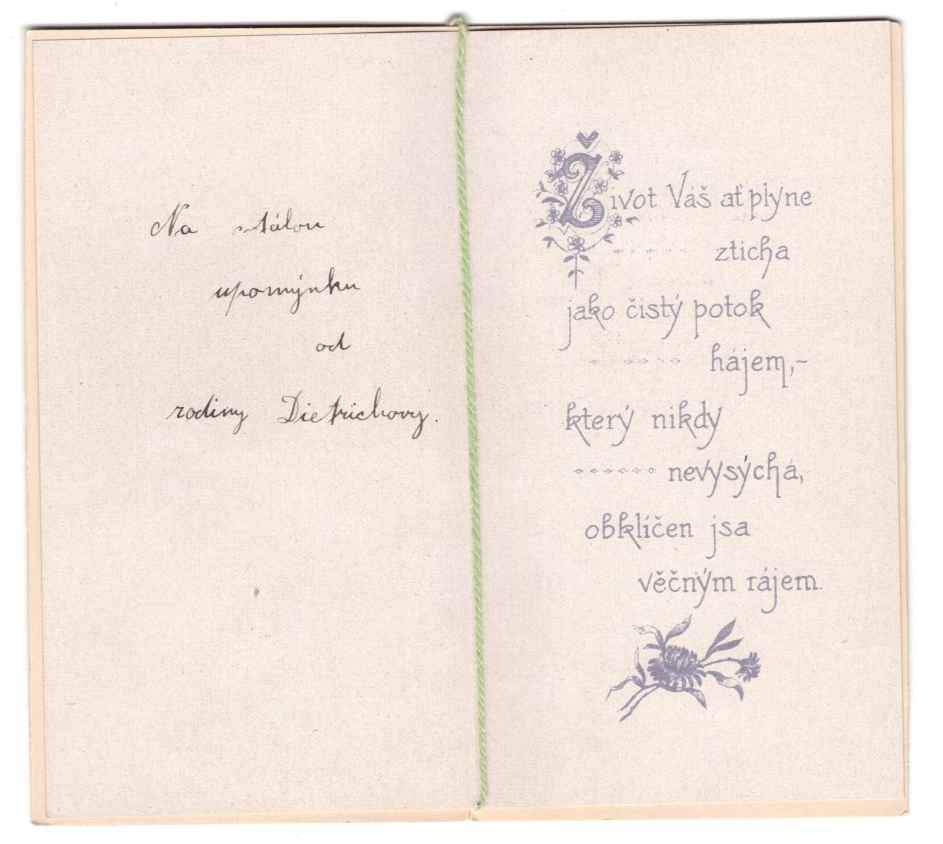 Na stálou
upomýnku
od
rodiny Dietrichovy.
Život Váš ať plyne
zticha
jako čistý potok
hájem,-
který nikdy
nevysýchá,
obklíčen jsa
věčným rájem.